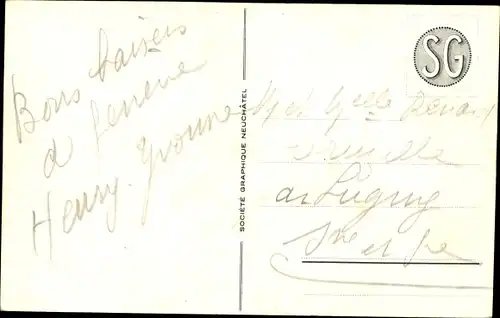 Bons baisers
de Genève
Henry. Yvonne
SOCIÉTÉ GRAPHIQUE NEUCHÂTEL
SG
M et Melle Benard
à Lugny
Sne et Lre